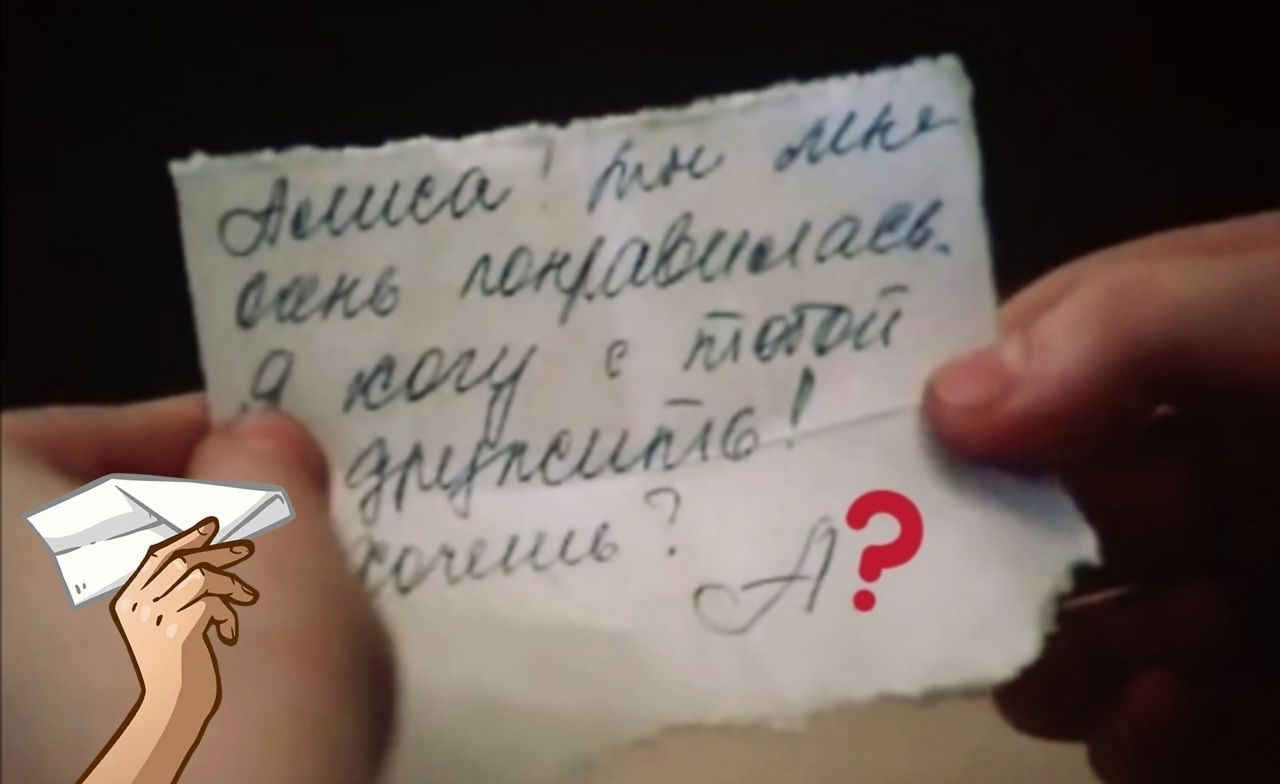 Алиса! ты мне
очень понравилась.
Я хочу с тобой
дружить!
хочешь?
А?